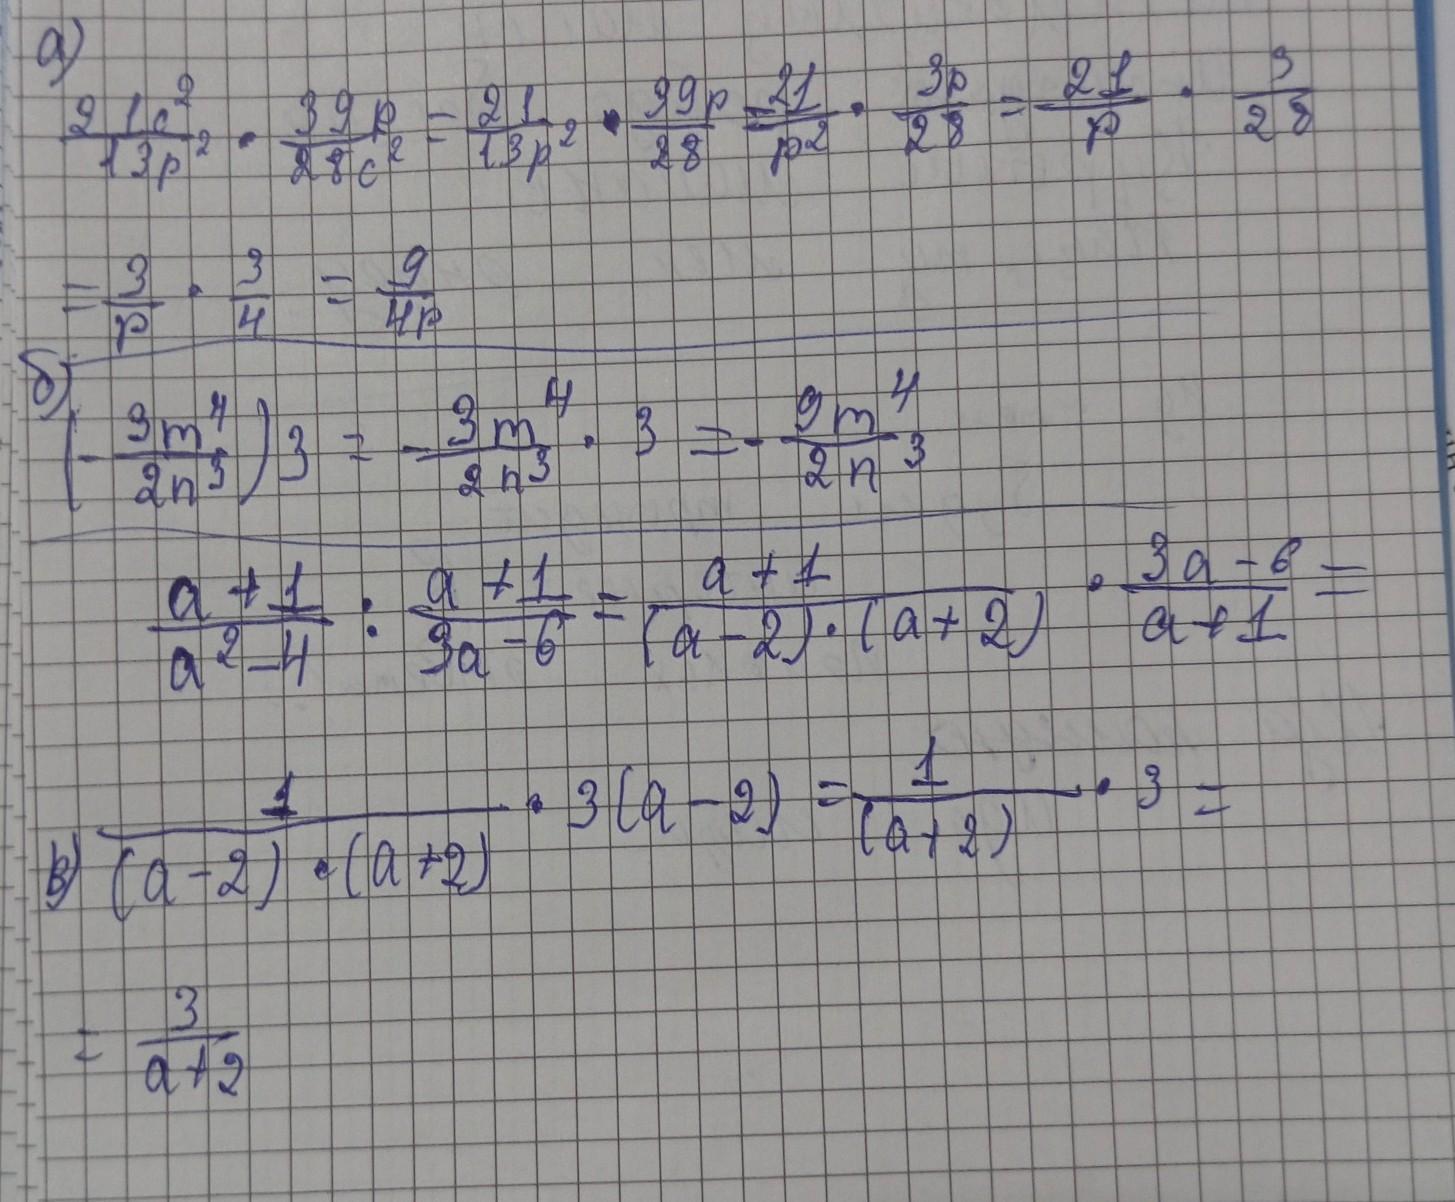 а)
21c²/13p² · 39p/28c² = 21/13p² · 39p/28 = 21/p² · 3p/28 = 21/p · 3/28
= 3/p · 3/4 = 9/4p
б)
(-3m⁴/2n³)3 = -3m⁴/2n³ · 3 = -9m⁴/2n³
a+1/a²-4 : a+1/3a-6 = a+1/(a-2)·(a+2) · 3a-6/a+1 =
в) 1/(a-2)·(a+2) · 3(a-2) = 1/(a+2) · 3 =
= 3/a+2